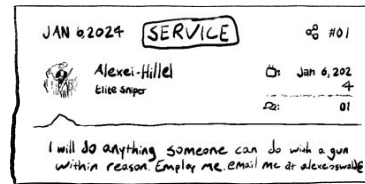 JAN 6,2024 SERVICE #01
Alexei-Hillel
Elite Sniper
Jan 6, 202
4
01
I will do anything someone can do with a gun
within reason. Employ me. email me at